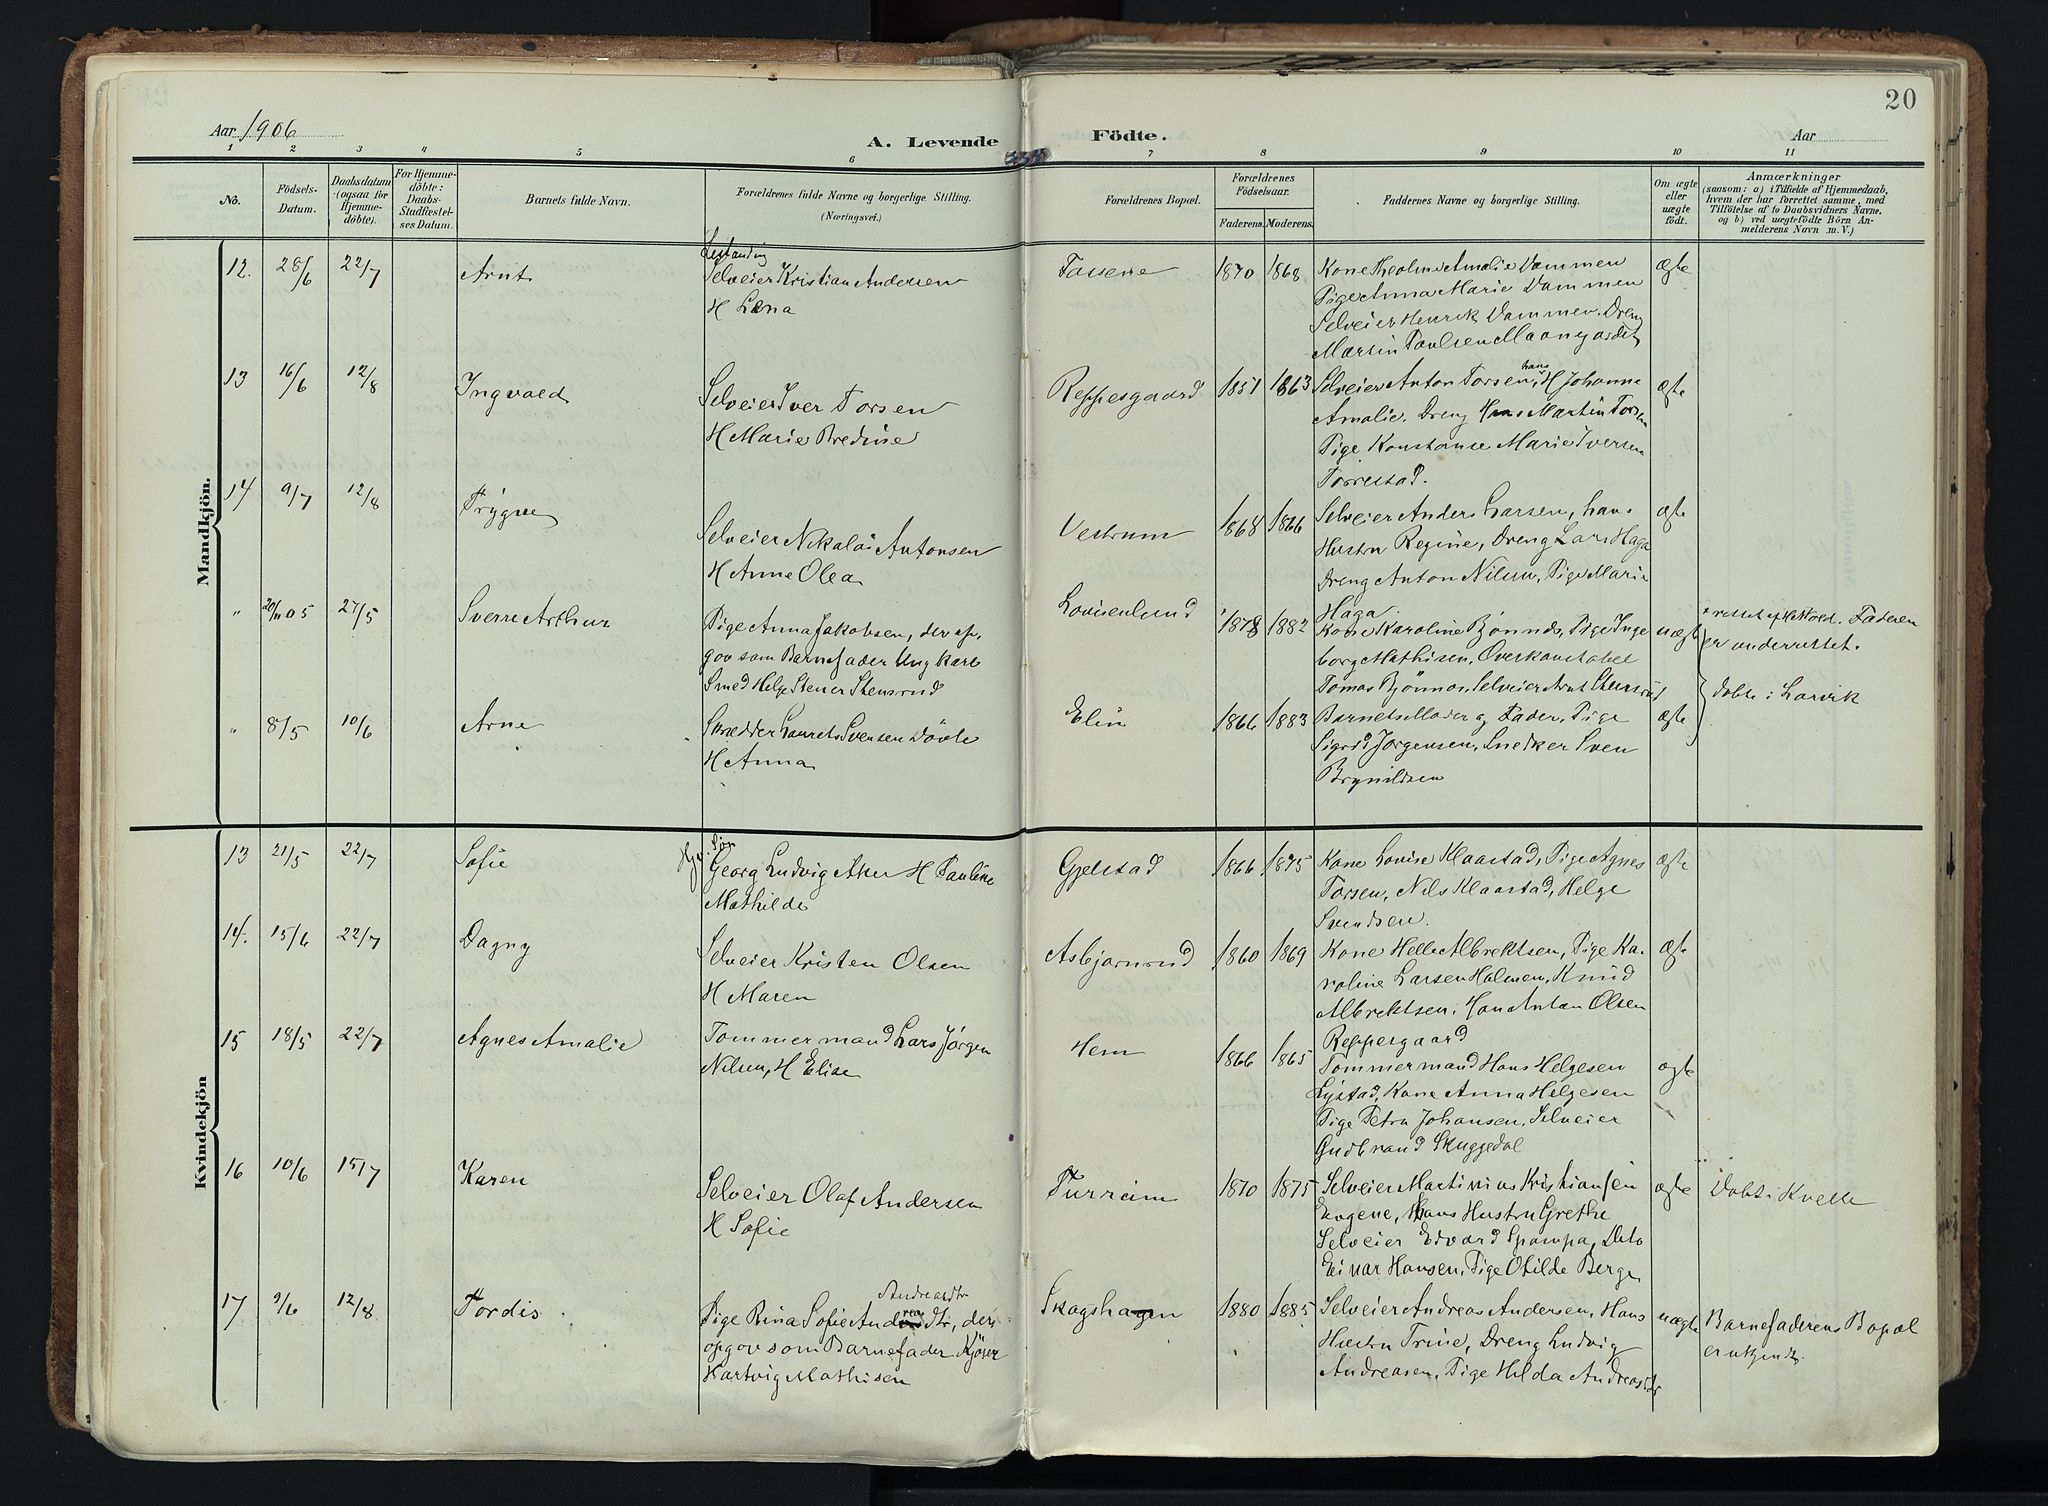 20
Aar 1906
A. Levende
Födte.
Aar
1 2 3 4 5 6 7 8 9 10 11
No.
Födsels-Datum.
Daabsdatum (ogsaa for Hjemmedöbte).
For Hjemmedöbte: Daabs-Stadfæstelses Datum.
Barnets fulde Navn.
Forældrenes fulde Navne og borgerlige Stilling.
(Næringsvei.)
Forældrenes Bopæl.
Forældrenes Födselsaar.
Faderens. Moderens.
Faddernes Navne og borgerlige Stilling.
Om ægte eller uægte födt.
Anmærkninger
(saasom: a) i Tilfælde af Hjemmedaab, hvem der har forrettet samme, med Tilföielse af to Daabsvidners Navne, og b) ved uægtefödte Börn Anmelderens Navn m. V.)
Mandkjön.
12. 28/6 22/7 Arnt
Selveier Kristian Andersen
H Lena
1870 1868
Kone Amalie Dammen
Pige Anna Marie Dammen
Selveier Henrik Dammen. Dreng
Martin Paulsen Maangardet
ægte
13 16/6 12/8 Ingvald
Selveier Iver Torsen
H Marie Bredine
Reppesgaard 1851 1863
Selveier Anton Torsen, hans H Johanne
Amalie. Dreng Hans Martin Torsen
Pige Konstanse Marie Iversen
Torrestad.
ægte
14 9/7 12/8 Trygve
Selveier Nikolai Antonsen
H Anne Olea
Vestrum 1868 1866
Selveier Anders Larsen, hans
Hustru Regine, Dreng Lars Haga
Dreng Anton Nilsen, Pige Marie
Haga
ægte
" 20/11 05 27/5 Sverre Arthur
Pige Anna Jakobsen, der op-
gov som Barnefader Ungkarl
Smed Helge Stener Stensrud
Lovisenlund 1878 1882
Kone Karoline Bjönnes, Pige Inge
borg Mathisen, Overkonstabel
Tomas Bjönnes, Selveier Arnt Stensrud
uægte
Faderen
er underrettet.
" 8/5 10/6 Arne
Skrædder Laurets Svensen Dövle
H Anna
Elin 1866 1883
Barnets Moder og Fader, Pige
Sigrid Jorgensen, Snedker Sven
Brynildsen
ægte
döbte i Larvik
Kvindekjön
13 21/5 22/7 Sofie
Georg Ludvig Aker H Pauline
Mathilde
Gjelstad 1866 1875
Kone Lovise Klaastad, Pige Agnes
Torsen, Nils Klaastad, Helge
Svendsen
ægte
14. 15/6 22/7 Dagny
Selveier Kristen Olsen
H Maren
Asbjørnrud 1860 1869
Kone Helle Albrektsen, Pige Ka-
roline Larsen Holmen, Knud
Albrektsen, Hans Anton Olsen
Reppesgaard
ægte
15 18/5 22/7 Agnes Amalie
Tommermand Lars Jørgen
Nilsen, H Elise
Hem 1866 1865
Tommermand Hans Helgesen
Lystad, Kone Anna Helgesen
Pige Petra Johansen, Selveier
Gudbrand Skuggedal
ægte
16 10/6 15/7 Karen
Selveier Olaf Andersen
H Sofie
Furreim 1870 1875
Selveier Martinius Kristiansen
Eugene, Hans Hustru Grethe
Selveier Edvard Spampa, Dito
Einar Hansen, Pige Otilde Berge
ægte
Döbt i Kvelle
17 9/6 12/8 Tordis
Andreasdtr
Pige Rina Sofie Andreasdtr, der
opgov som Barnefader Kjører
Hartvig Mathisen
Skogshagen 1880 1885
Selveier Andreas Andersen, Hans
Hustru Trine, Dreng Ludvig
Andreasen, Pige Hilda Andreasdtr
uægte
Barnefaderens Bopæl
er ukjendt.